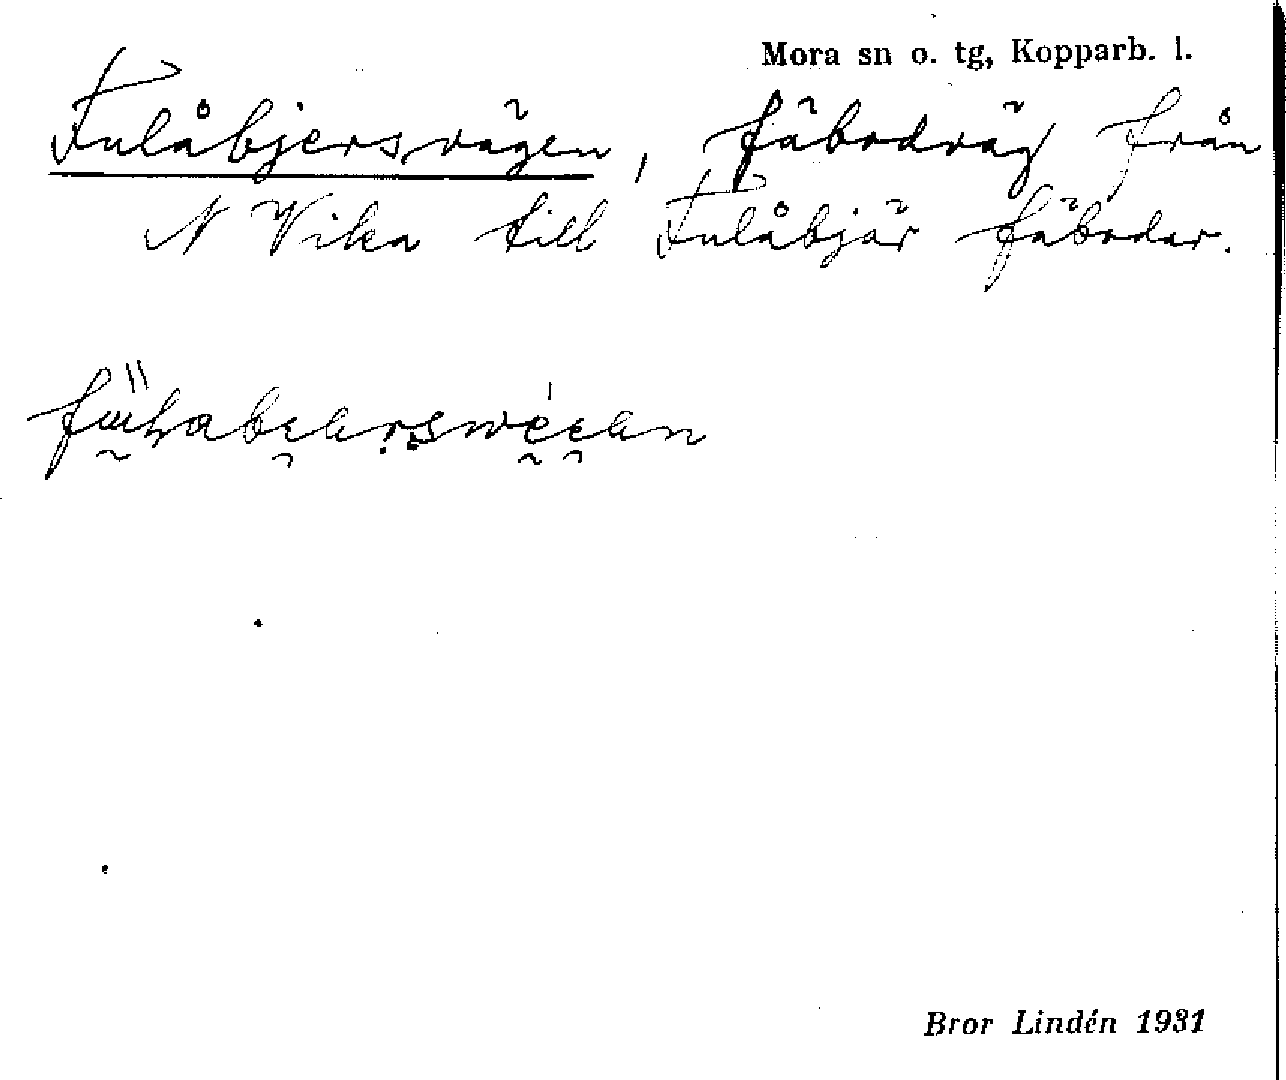 Mora sn o. tg, Kopparb. l.
Fulåbjersvägen, fäbodväg från
N Vika till Fulåbjär fäbodar.
Bror Lindén 1931